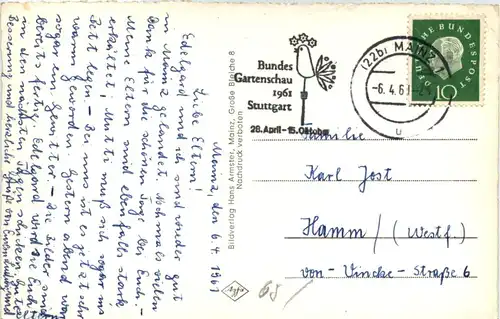 Mainz, den 6.4.1961
Liebe Eltern!
Edelgard und ich sind wieder gut
in Mainz gelandet. Nochmals vielen
Dank für die schönen Tage bei Euch. -
Meine Eltern sind ebenfalls stark
erkältet, Mutti muß sich sogar ins
Bett legen - Bei uns ist es jetzt sehr
warm geworden. Gestern abend war
sogar ein Gewitter - Die Bilder sind
bereits fertig. Edelgard wird sie Euch
in den nächsten Tagen schicken. Gute
Besserung und herzliche Grüße von
Bildverlag Hans Armster, Mainz, Große Bleiche 8
Nachdruck verboten
Bundes
Gartenschau
1961
Stuttgart
28. April - 15. Oktober
(22b) MAINZ
-6.4.61
u
DEUTSCHE BUNDESPOST
10
Familie
Karl Jost
Hamm / (Westf.)
von-Vincke-Straße 6